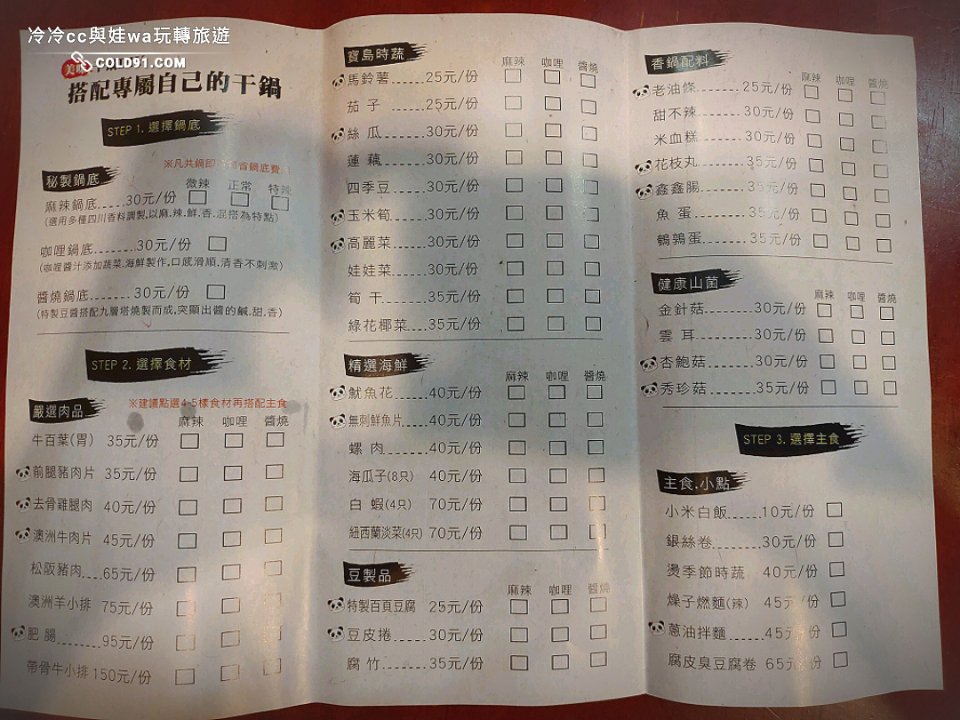 冷冷cc與娃wa玩轉旅遊
COLD91.COM
搭配專屬自己的干鍋
STEP 1. 選擇鍋底
※凡共鍋即
省鍋底費
秘製鍋底
微辣 正常 特辣
麻辣鍋底......30元/份
(選用多種四川香料調製,以麻.辣.鮮.香.混搭為特點)
咖哩鍋底.......30元/份
(咖哩醬汁添加蔬菜.海鮮製作,口感滑順.清香不刺激)
醬燒鍋底.......30元/份
(特製豆醬搭配九層塔燒製而成,突顯出醬的鹹.甜.香)
STEP 2. 選擇食材
※建議點選4-5樣食材再搭配主食
嚴選肉品
麻辣 咖哩 醬燒
牛百葉(胃) 35元/份
前腿豬肉片 35元/份
去骨雞腿肉 40元/份
澳洲牛肉片 45元/份
松阪豬肉...65元/份
澳洲羊小排 75元/份
肥腸.......95元/份
帶骨牛小排 150元/份
寶島時蔬
麻辣 咖哩 醬燒
馬鈴薯......25元/份
茄子......25元/份
絲瓜......30元/份
蓮藕......30元/份
四季豆......30元/份
玉米筍......30元/份
高麗菜......30元/份
娃娃菜......30元/份
筍干......35元/份
綠花椰菜...35元/份
精選海鮮
麻辣 咖哩 醬燒
魷魚花......40元/份
無刺鮮魚片......40元/份
螺肉......40元/份
海瓜子(8只) 40元/份
白蝦(4只) 70元/份
紐西蘭淡菜(4只) 70元/份
豆製品
麻辣 咖哩 醬燒
特製百頁豆腐 25元/份
豆皮捲......30元/份
腐竹......35元/份
香鍋配料
麻辣 咖哩 醬燒
老油條......25元/份
甜不辣......30元/份
米血糕......30元/份
花枝丸......35元/份
鑫鑫腸......35元/份
魚蛋......35元/份
鵪鶉蛋......35元/份
健康山菌
麻辣 咖哩 醬燒
金針菇......30元/份
雲耳......30元/份
杏鮑菇......30元/份
秀珍菇......35元/份
STEP 3. 選擇主食
主食.小點
小米白飯......10元/份
銀絲卷......30元/份
燙季節時蔬 40元/份
燥子燃麵(辣) 45元/份
蔥油拌麵......45元/份
腐皮臭豆腐卷 65元/份